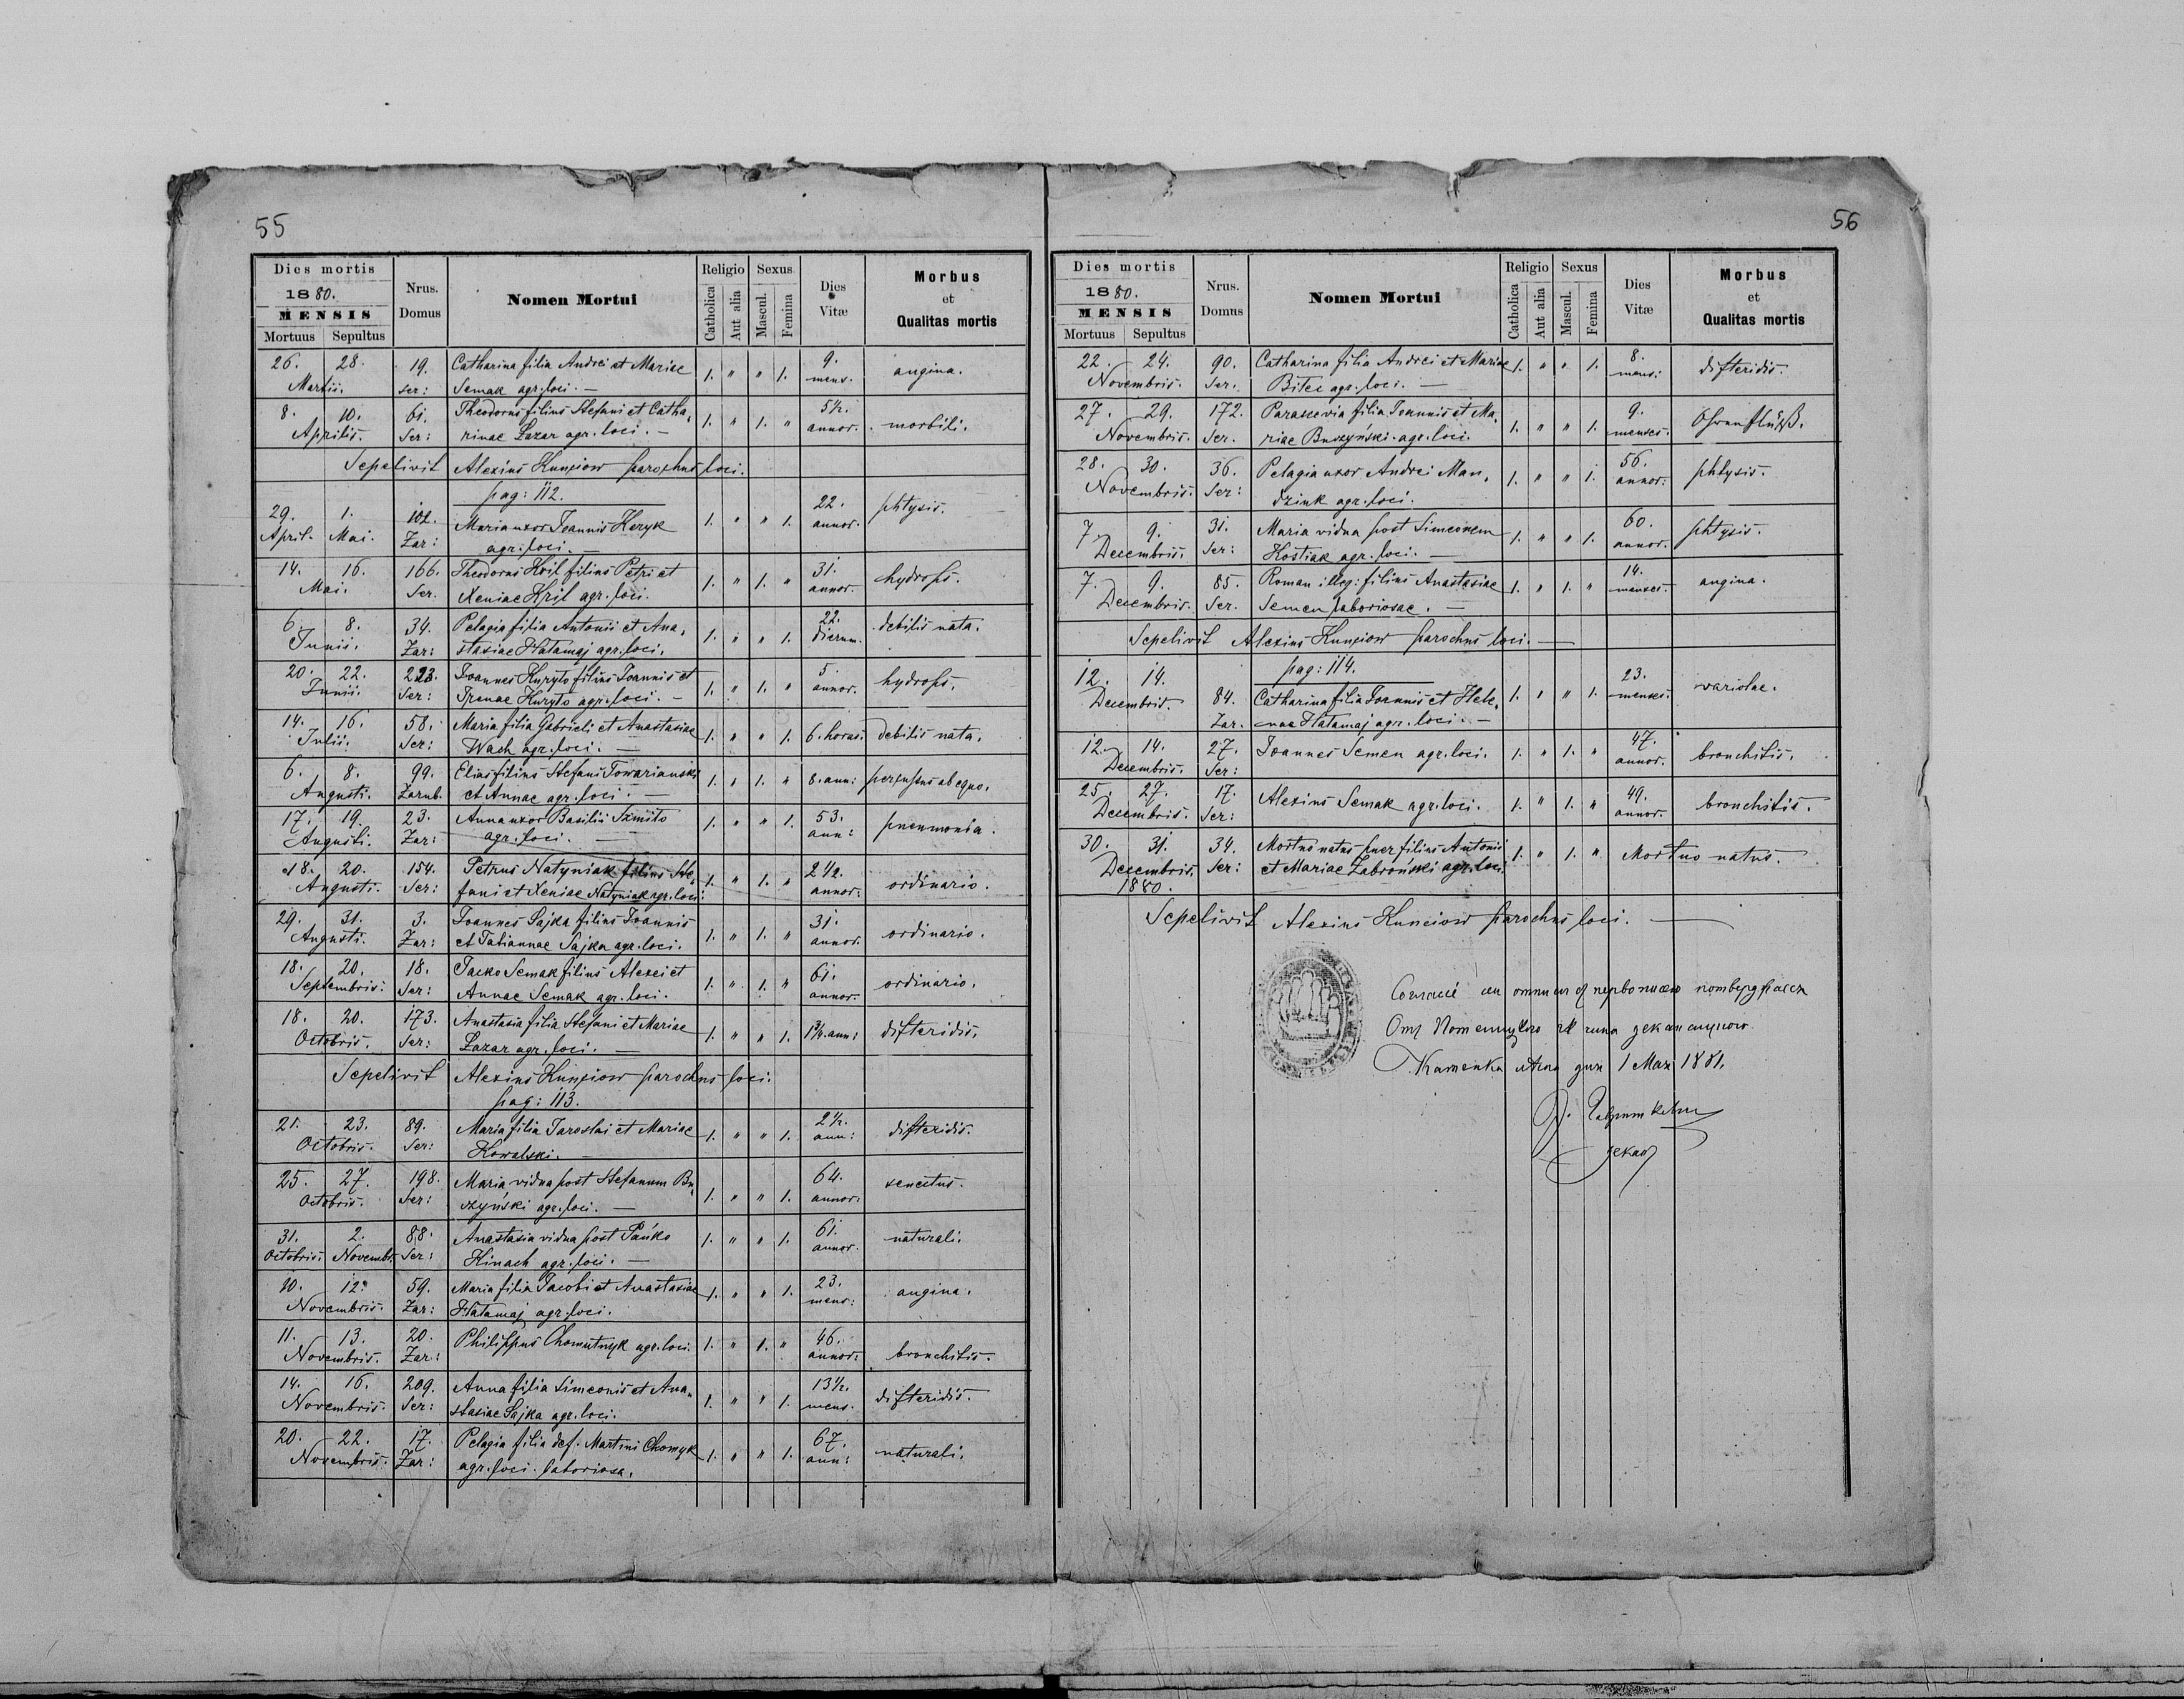 55
Dies mortis
1880.
MENSIS
Mortuus Sepultus
Nrus. Domus
Nomen Mortui
Religio
Catholica Aut alia
Sexus
Mascul. Femina
Dies Vitæ
Morbus et Qualitas mortis
26. 28. 19. Catharina filia Andrei et Mariae 1. " " 1. 9. angina.
Martii. Ser: Semak agr. loci. — mens.
8. 10. 61. Theodorus filius Stefani et Catha, 1. " 1. " 5½. morbili.
Aprilis. Ser: rinae Lazar agr. loci. — annor.
Sepelivit Alexius Kunciow parochus loci.
pag: 112.
29. 1. 102. Maria uxor Joannis Heryk 1. " " 1. 22. phtysis.
April. Mai. Zar: agr. loci. — annor.
14. 16. 166. Theodorus Kril filius Petri et 1. " 1. " 31. hydrops.
Mai. Ser. Xeniae Kril agr. loci. annor.
6. 8. 34. Pelagia filia Antonii et Ana, 1. " " 1. 22. debilis nata.
Junii. Zar: stasiae Hatamaj agr. loci. dierum.
20. 22. 223. Joannes Kuryło filius Joannis et 1. " 1. " 5. hydrops.
Junii. Ser: Irenae Kuryło agr. loci. — annor.
14. 16. 58. Maria filia Gabrieli et Anastasiae 1. " " 1. 6. horas. debilis nata.
Julii. Ser: Wach agr. loci. —
6. 8. 99. Elias filius Stefani Towarianski 1. " 1. " 8. ann: percussus ab equo.
Augusti. Zarub. et Annae agr. loci. —
17. 19. 23. Anna uxor Basilii Szmiło 1. " " 1. 53. pneumonia.
Augusti. Zar: agr. loci. — ann:
18. 20. 154. Petrus Natyniak filius Ste, 1. " 1. " 2½. ordinario.
Augusti. Ser: fani et Xeniae Natyniak agr. loci. annor.
29. 31. 3. Joannes Sajka filius Joannis 1. " 1. " 31. ordinario.
Augusti. Zar: et Tatiannae Sajka agr. loci. annor.
18. 20. 18. Jacko Semak filius Alexei et 1. " 1. " 61. ordinario.
Septembris. Ser: Annae Semak agr. loci. annor.
18. 20. 173. Anastasia filia Stefani et Mariae 1. " " 1. 1½. ann: difteridis.
Octobris. Ser: Lazar agr. loci. —
Sepelivit Alexius Kunciow parochus loci.
pag: 113.
21. 23. 89. Maria filia Jaroslai et Mariae 1. " " 1. 2½. difteridis.
Octobris. Ser: Kowalski. — ann:
25. 27. 198. Maria vidua post Stefanum Bu, 1. " " 1. 64. senectus.
Octobris. Ser: szyński agr. loci. — annor.
31. 2. 88. Anastasia vidua post Pańko 1. " " 1. 61. naturali.
Octobris. Novemb. Ser: Kinach agr. loci. — annor.
10. 12. 59. Maria filia Jacobi et Anastasiae 1. " " 1. 23. angina.
Novembris. Zar: Hatamaj agr. loci. mens:
11. 13. 20. Philippus Chomutnyk agr. loci. 1. " 1. " 46. bronchitis.
Novembris. Zar: annor:
14. 16. 209. Anna filia Simeonis et Ana, 1. " " 1. 13½. difteridis.
Novembris. Ser: stasiae Sajka agr. loci. mens.
20. 22. 17. Pelagia filia def. Martini Chomyk 1. " " 1. 67. naturali.
Novembris. Zar: agr. loci. laboriosa. ann:
56
Dies mortis
1880.
MENSIS
Mortuus Sepultus
Nrus. Domus
Nomen Mortui
Religio
Catholica Aut alia
Sexus
Mascul. Femina
Dies Vitæ
Morbus et Qualitas mortis
22. 24. 90. Catharina filia Andrei et Mariae 1. " " 1. 8. difteridis.
Novembris. Ser. Bitec agr. loci. — mens:
27. 29. 172. Parascevia filia Joannis et Ma, 1. " " 1. 9.
Novembris. Ser. riae Buszyński agr. loci. menses.
28. 30. 36. Pelagia uxor Andrei Man, 1. " " 1. 56. phtysis.
Novembris. Ser: dziuk agr. loci. annor.
7. 9. 31. Maria vidua post Simeonem 1. " " 1. 60. phtysis.
Decembris. Ser: Kostiak agr. loci. — annor.
7. 9. 85. Roman illeg: filius Anastasiae 1. " 1. " 14. angina.
Decembris. Ser. Semen laboriosae. — menses.
Sepelivit Alexius Kunciow parochus loci. —
pag: 114.
12. 14. 84. Catharina filia Joannis et Hele, 1. " " 1. 23. wariolae.
Decembris. Zar. nae Hatamaj agr. loci. — menses.
12. 14. 27. Joannes Semen agr. loci. 1. " 1. " 47. bronchitis.
Decembris. Ser: annor.
25. 27. 17. Alexius Semak agr. loci. 1. " 1. " 49. bronchitis.
Decembris. Ser: annor.
30. 31. 34. Mortuo natus puer filius Antonii 1. " 1. " Mortuo natus.
Decembris. Ser: et Mariae Zabroński agr. loci.
1880.
Sepelivit Alexius Kunciow parochus loci. —
1 1881.